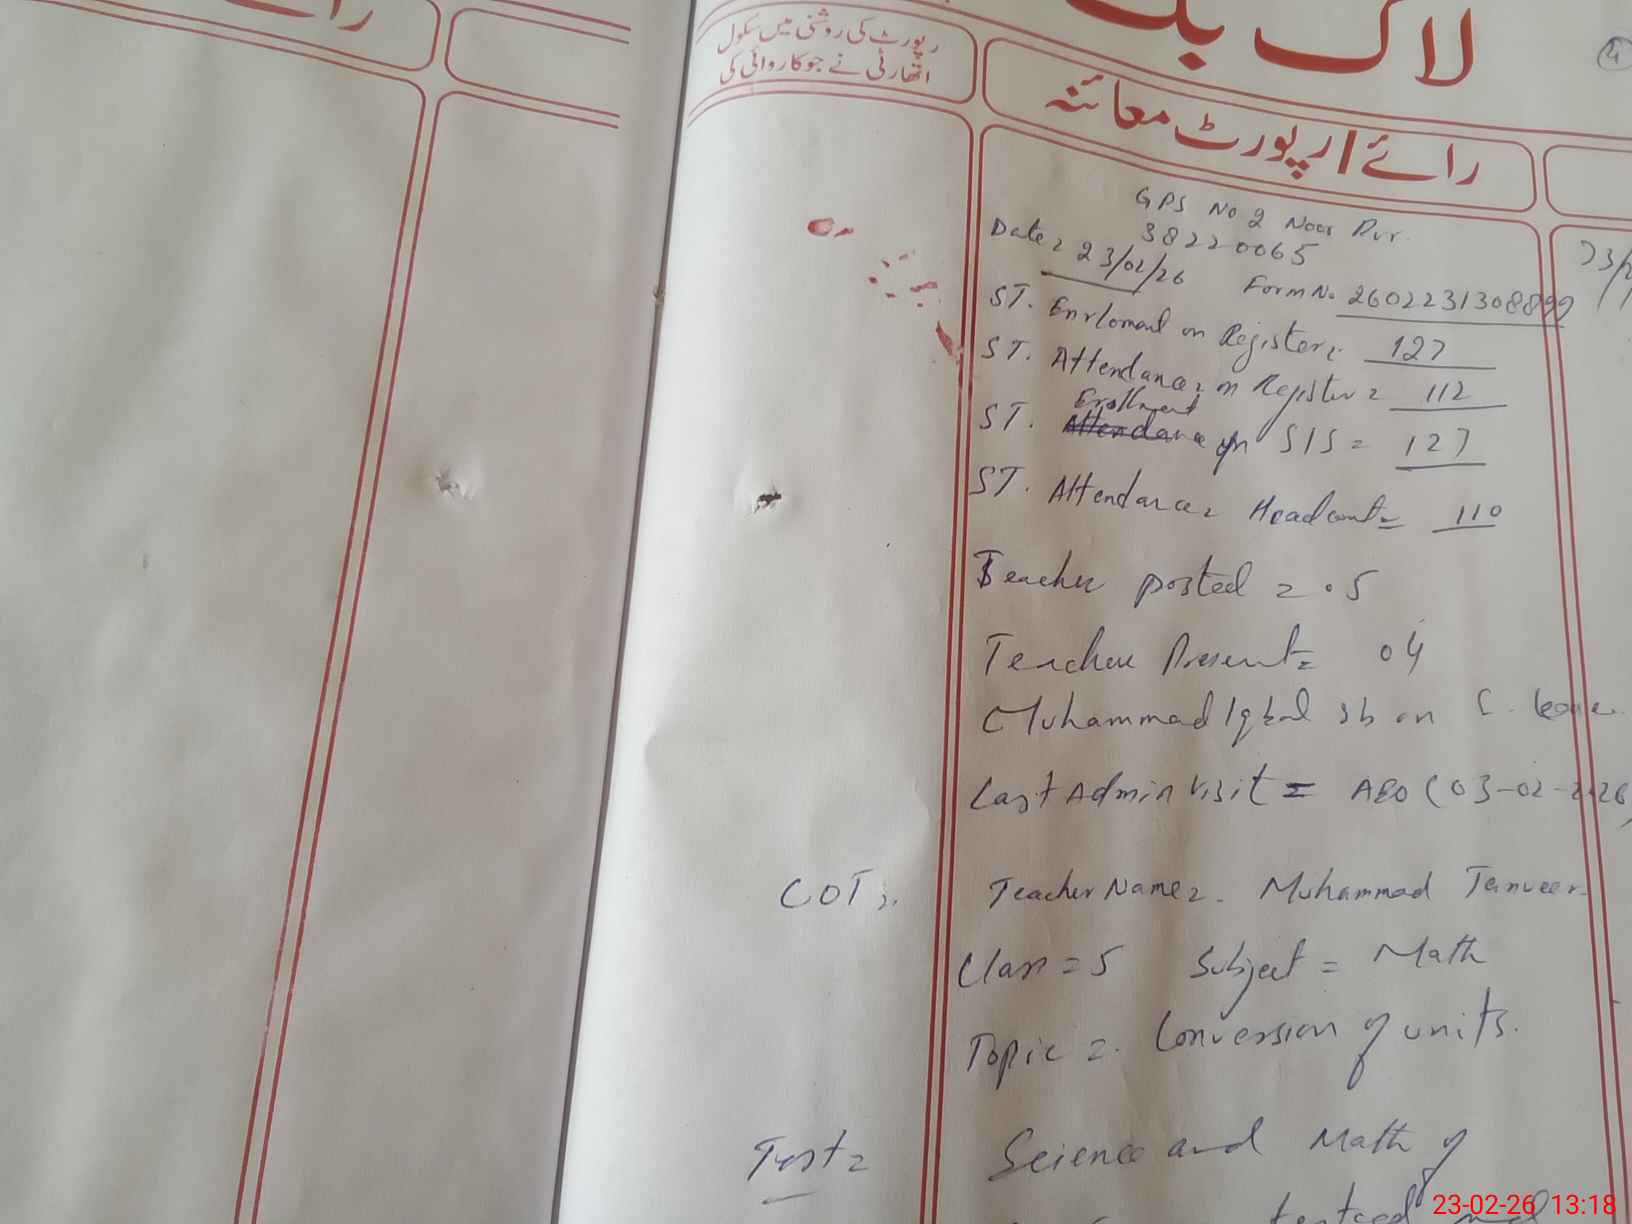 لاگ بک
رائے
رپورٹ کی روشنی میں سکول
اتھارٹی نے جو کاروائی کی
رائے/رپورٹ معائنہ
4
GPS No 2 Noor Pur.
38220065
Date = 23/02/26
23/
Form No. 2602231308899
ST. Enrloment on Register = 127
ST. Attendance on Register = 112
ST. Enrollment on SIS = 127
ST. Attendance Headcount = 110
Teacher posted = 05
Teacher Present = 04
Muhammad Iqbal sb on C. leave
Last Admin Visit = AEO (03-02-2026)
COT = Teacher Name = Muhammad Tanveer
Class = 5 Subject = Math
Topic = Conversion of units.
Test = Science and Math of
23-02-26 13:18